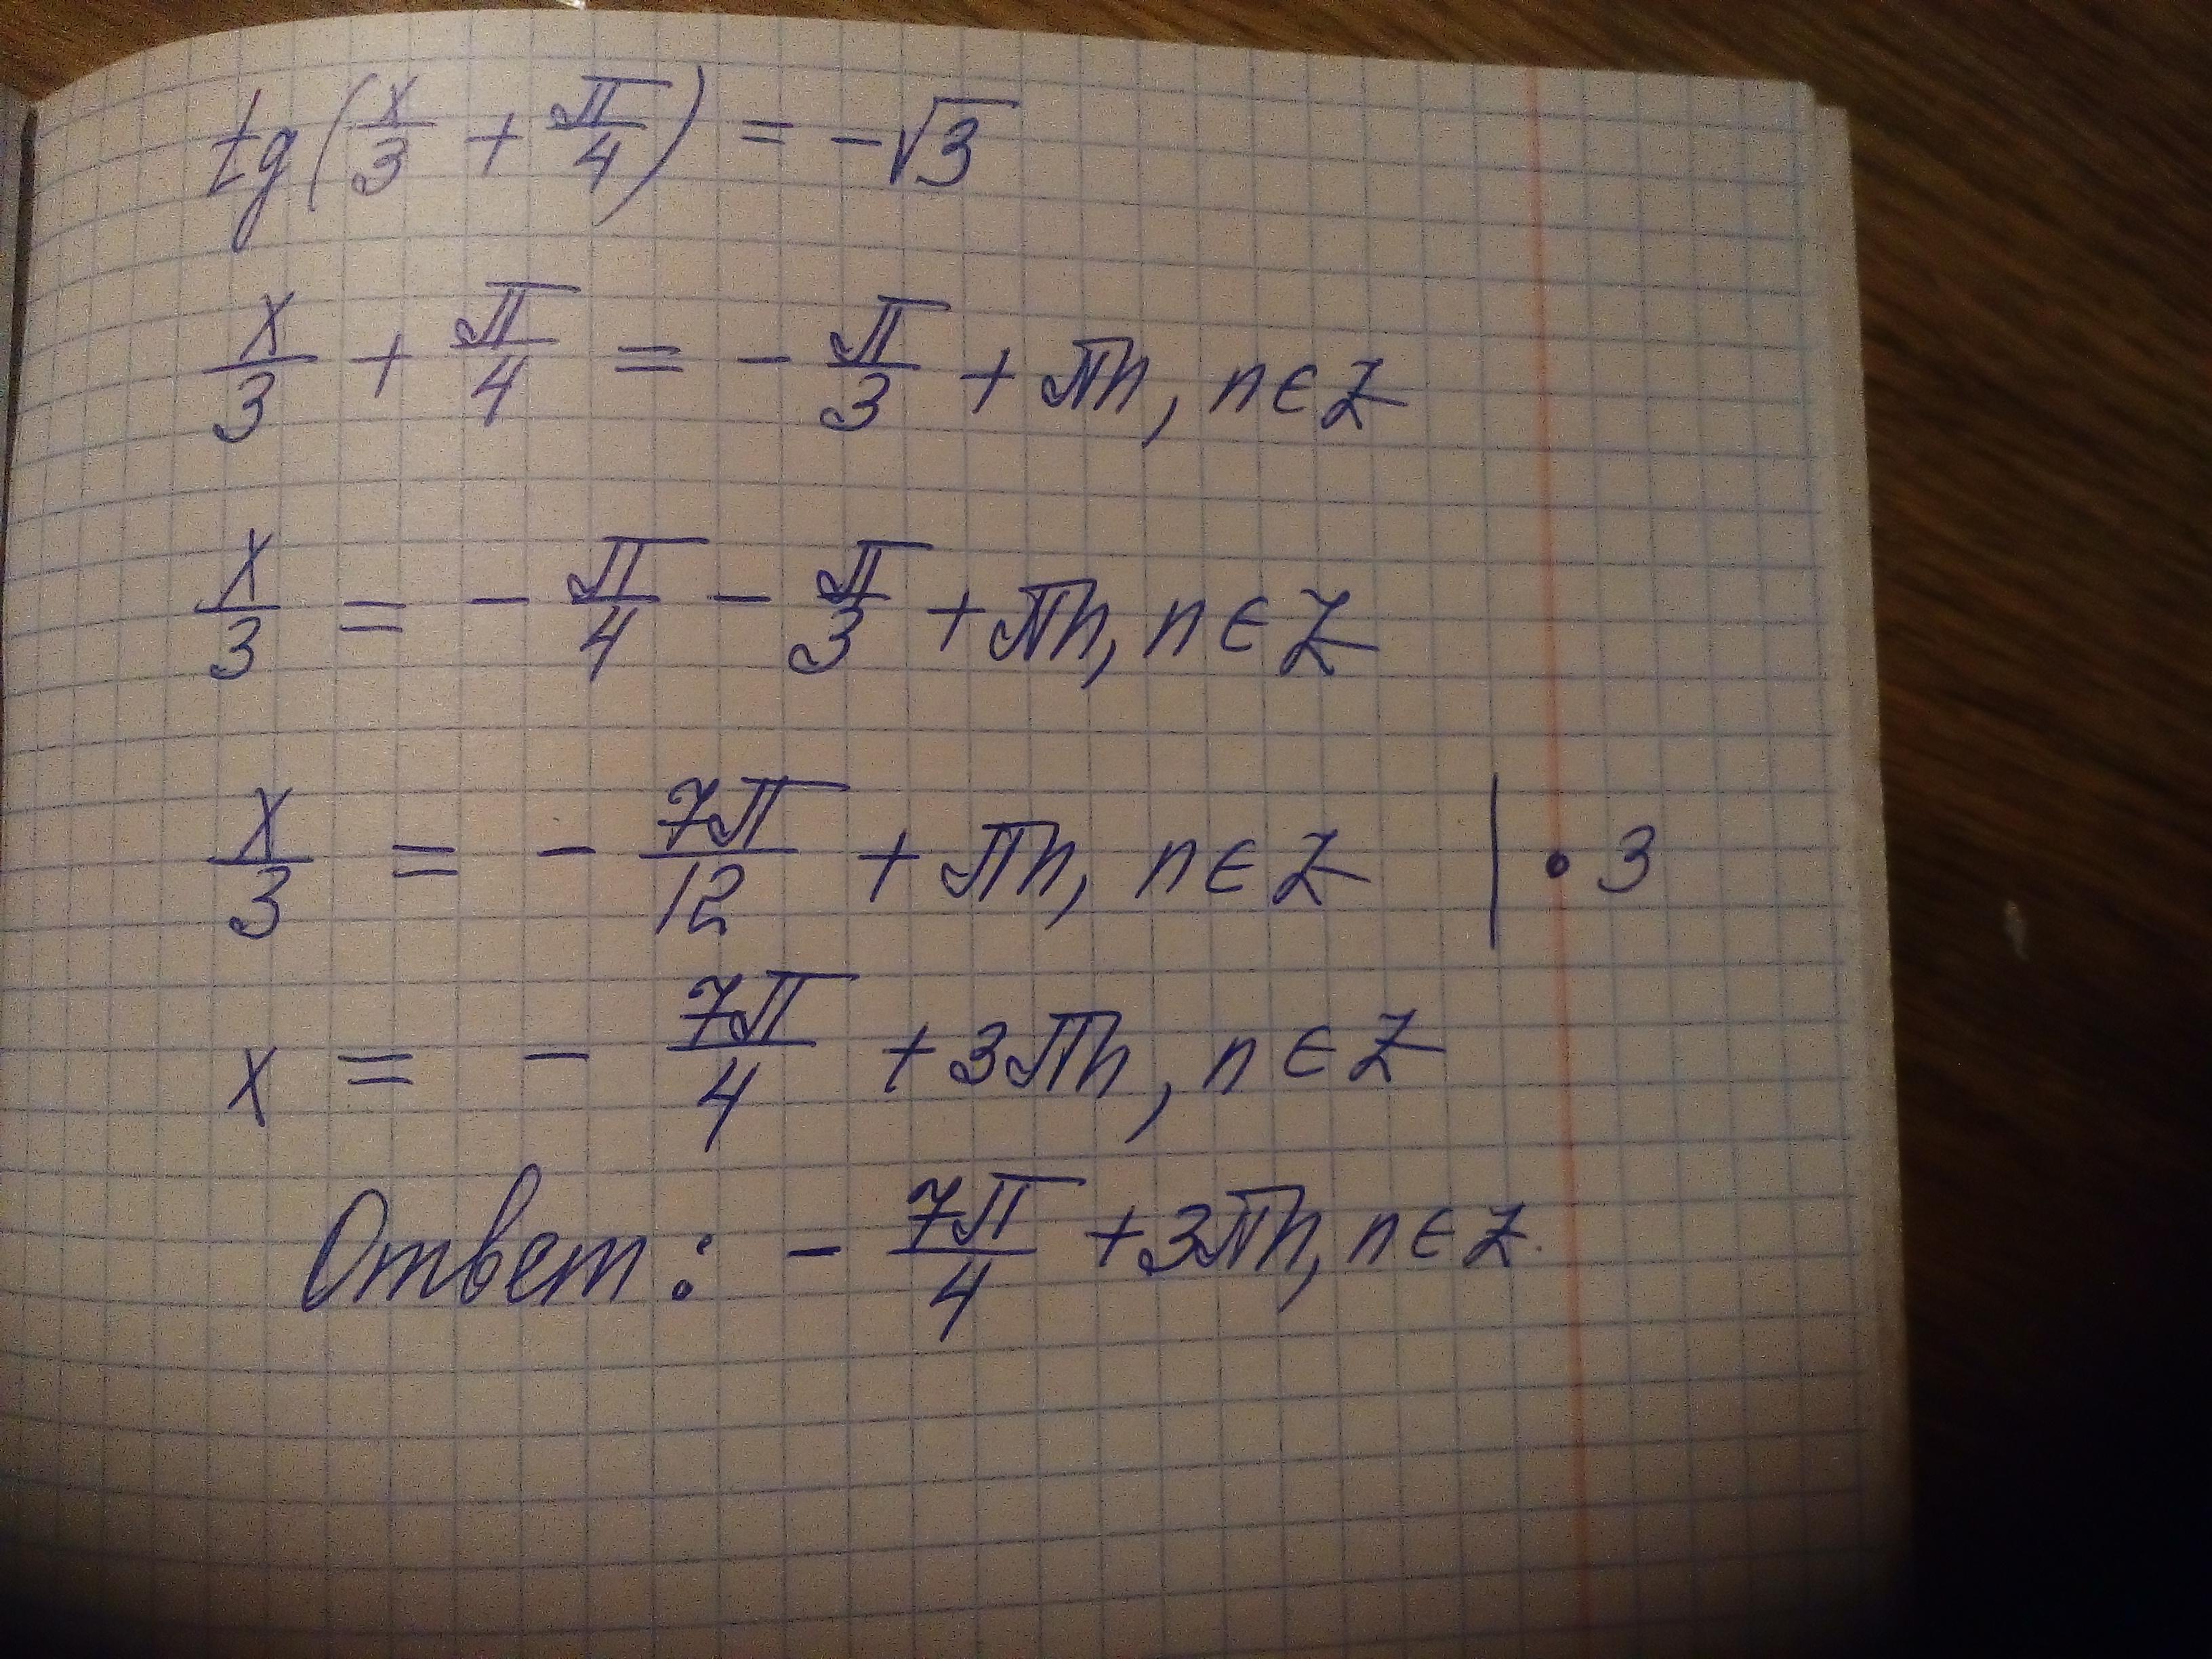 tg(x/3 + π/4) = -√3
x/3 + π/4 = - π/3 + πn, n ∈ Z
x/3 = - π/4 - π/3 + πn, n ∈ Z
x/3 = - 7π/12 + πn, n ∈ Z | · 3
x = - 7π/4 + 3πn, n ∈ Z
Ответ: - 7π/4 + 3πn, n ∈ Z.